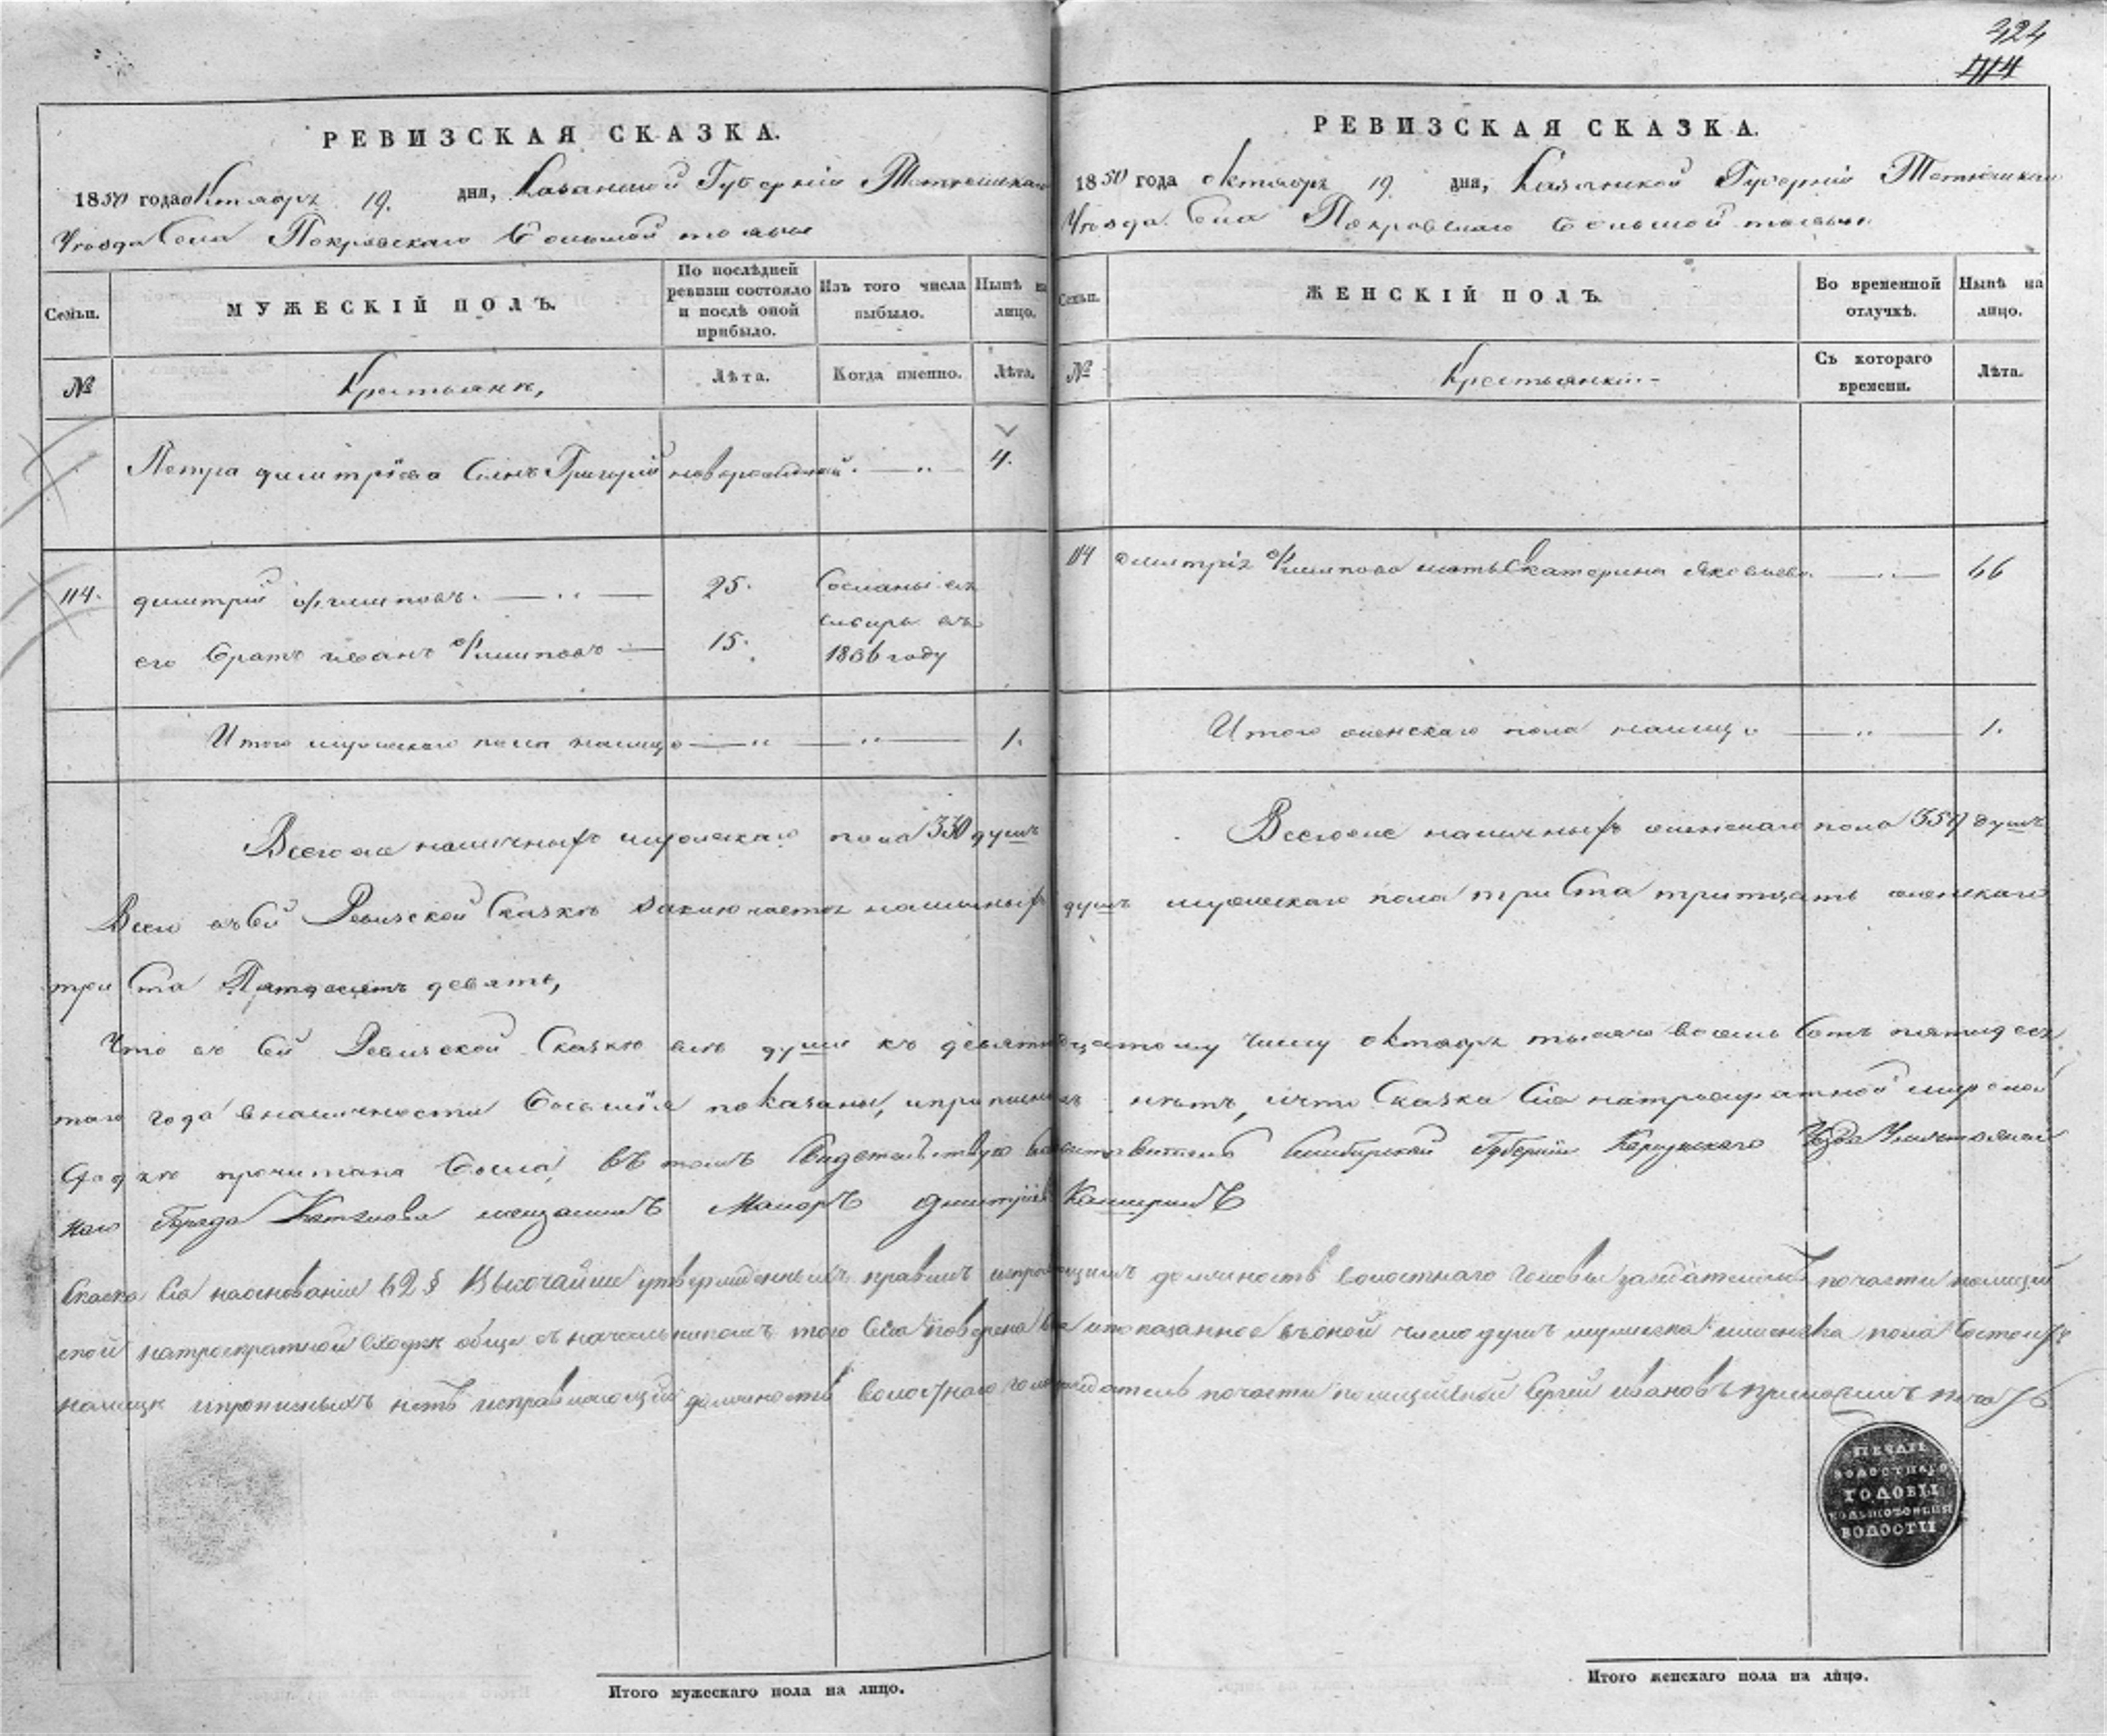 324
114
РЕВИЗСКАЯ СКАЗКА.
1850 года Октября 19. дня, Казанской Губерніи Тетюшскаго
Уѣзда Села Покровскаго Большой тоябы
Семьи.
МУЖЕСКІЙ ПОЛЪ.
По послѣдней ревизіи состояло и послѣ оной прибыло.
Изъ того числа выбыло.
Нынѣ на лицо.
№
Крестьяне,
Лѣта.
Когда именно.
Лѣта.
Петра димитріева Сынъ Григорій новорожденной 4.
114. димитрій Филиповъ. 25. Сосланы въ
сибирь въ
его братъ иванъ Филиповъ 15. 1836 году
Итого мужескаго пола налицо 1.
Всего же наличныхъ мужескаго пола 330 душъ
РЕВИЗСКАЯ СКАЗКА.
1850 года Октября 19. дня, Казанской Губерніи Тетюшскаго
Уѣзда Села Покровскаго Большой тоябы
Семьи.
ЖЕНСКІЙ ПОЛЪ.
Во временной отлучкѣ.
Нынѣ на лицо.
№
Крестьянки
Съ котораго времени.
Лѣта.
114 димитрія Филипова мать Екатерина Яковлева. 66
Итого женскаго пола налицо 1.
Всего же наличныхъ женскаго пола 359 душъ
Всего въ сей Ревизской Сказкѣ заключается наличныхъ душъ мужескаго пола три ста тритцать женскаго
три ста Пятдесятъ девять,
Что въ сей Ревизской Сказкѣ всѣ души къ девятнадцатому числу Октября тысяча восемь сотъ пятидеся
таго года въ наличности бывшія показаны, ипрописныхъ нѣтъ, ичто Сказка Сія натроекратной мирской
Сходкѣ прочитана была, въ томъ Свидетельствую Составитель Симбирской Губерніи Уѣзда
наго Города мещанинъ Дмитріевъ
Сказка Сія наосновании 62 § Высочайше утвержденныхъ правилъ исправляющимъ должность волостнаго Головы засѣдателемъ почасти полицей
ской натроекратной Сходкѣ обще съ начальникомъ того Села повѣрена ипоказанное въ оной число душъ мужеска иженска пола Состоитъ
налицо ипрописныхъ нетъ исправляющій должность волостнаго Головы засѣдатель почасти полицейской Сергей ивановъ приложилъ печать
ПЕЧАТЬ
ВОЛОСТНАГО
ГОЛОВЫ
ВОЛОСТИ
Итого мужескаго пола на лицо.
Итого женскаго пола на лицо.